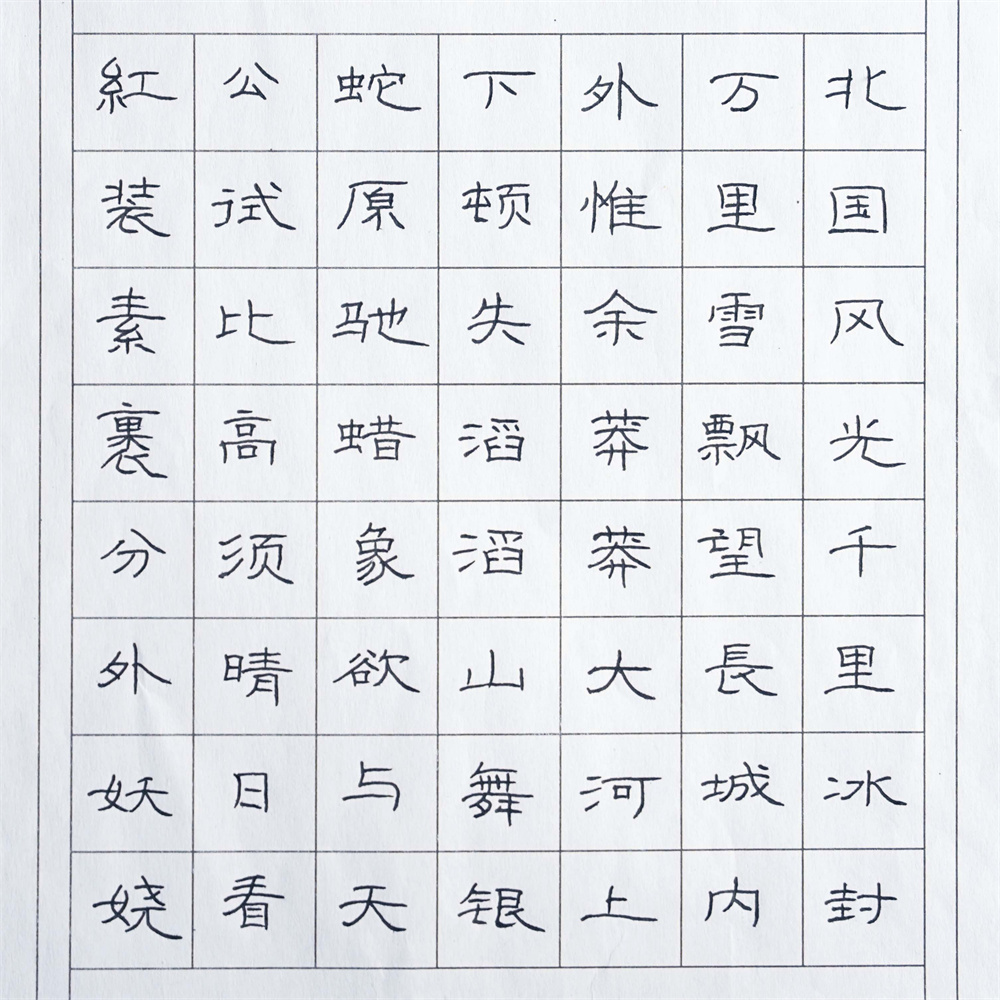 北国风光千里冰封
万里雪飘望長城内
外惟余莽莽大河上
下顿失滔滔山舞银
蛇原驰蜡象欲与天
公试比高须晴日看
紅装素裹分外妖娆